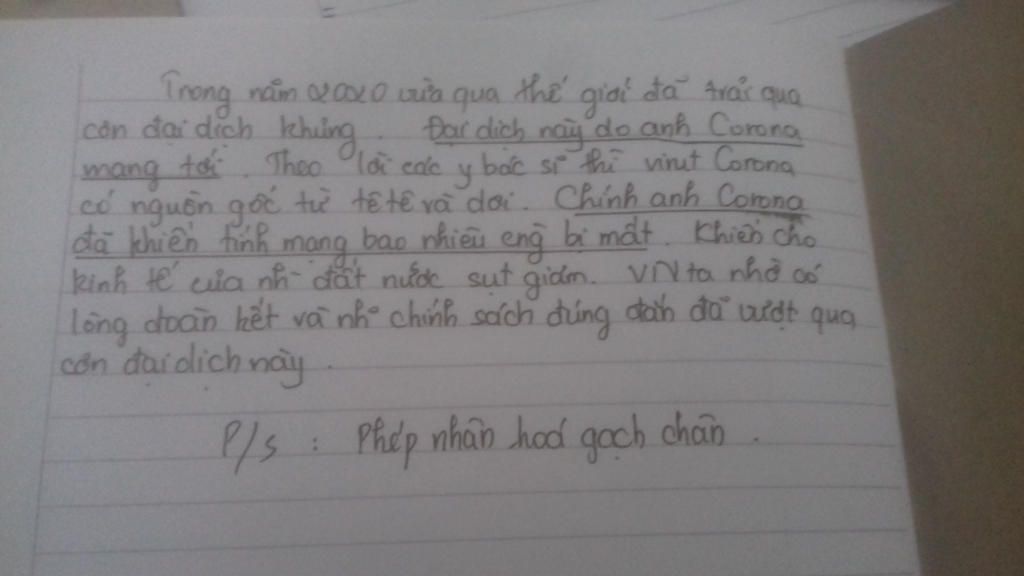 Trong năm 2020 vừa qua thế giới đã trải qua
cơn đại dịch khủng. Đại dịch này do anh Corona
mang tới. Theo lời các y bác sĩ thì virut Corona
có nguồn gốc từ tê tê và dơi. Chính anh Corona
đã khiến tính mạng bao nhiêu bị mất. Khiến cho
kinh tế của nh~ đất nước sụt giảm. VN ta nhờ có
lòng đoàn kết và nh~ chính sách đúng đắn đã vượt qua
cơn đại dịch này.
P/s : Phép nhân hoá gạch chân.